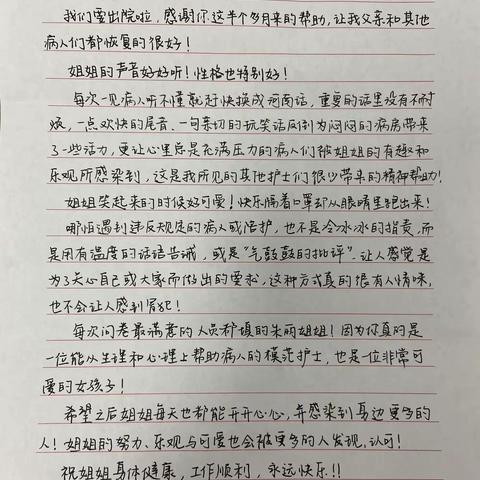 我们要出院啦，感谢你这半个多月来的帮助，让我父亲和其他
病人们都恢复的很好！
姐姐的声音好好听！性格也特别好！
每次一见病人听不懂就赶快换成河南话，重要的话里没有不耐
烦，一点欢快的尾音、一句亲切的玩笑话反倒为闷闷的病房带来
了一些活力，更让心里总是充满压力的病人们被姐姐的有趣和
乐观所感染到，这是我所见的其他护士们很少带来的精神帮助！
姐姐笑起来的时候好可爱！快乐隔着口罩却从眼睛里跑出来！
哪怕遇到违反规定的病人或陪护，也不是冷冰冰的指责，而
是用有温度的话语告诫，或是“气鼓鼓的批评”。让人感觉是
为了关心自己或大家而做出的要求，这种方式真的很有人情味，
也不会让人感到冒犯！
每次问卷最满意的人员都填的朱丽姐姐！因为你真的是
一位能从生理和心理上帮助病人的模范护士，也是一位非常可
爱的女孩子！
希望之后姐姐每天也都能开开心心，并感染到身边更多的
人！姐姐的努力、乐观与可爱也会被更多的人发现、认可！
祝姐姐身体健康，工作顺利，永远快乐！！